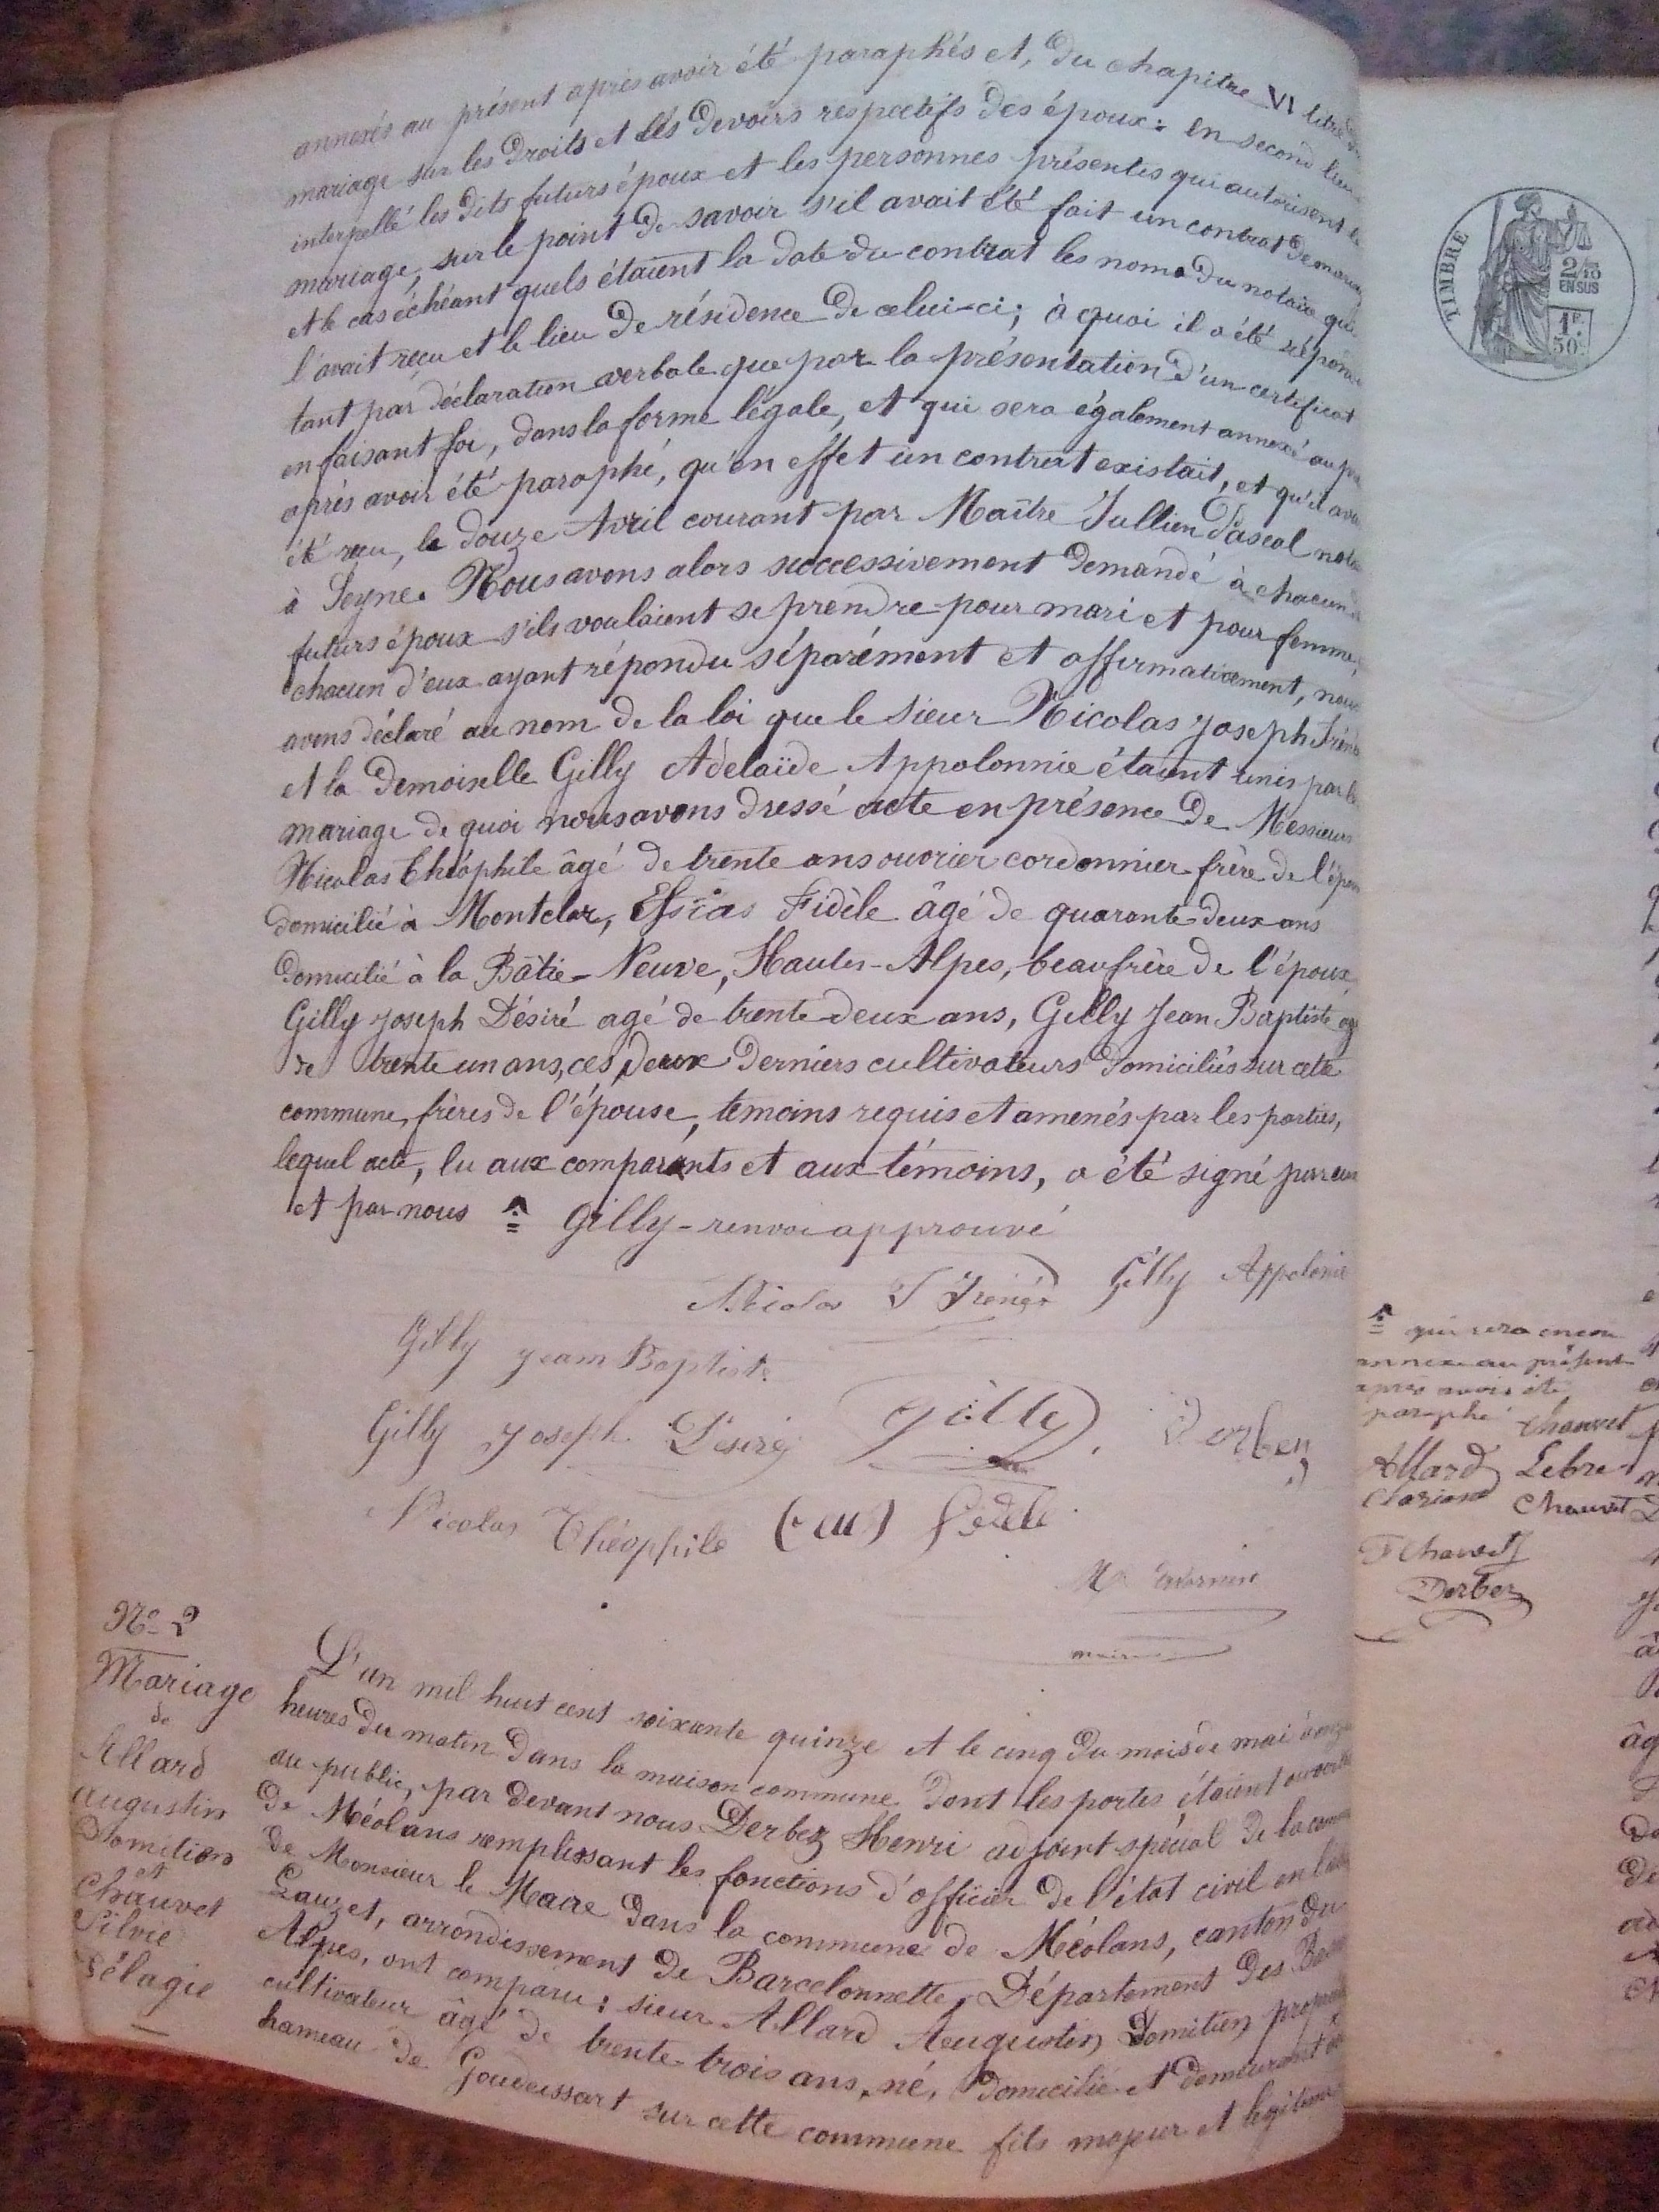 annexés au présent après avoir été paraphés et, du chapitre VI titre du
mariage sur les droits et les devoirs respectifs des époux: en second lieu
interpellé les dits futurs époux et les personnes présentes qui autorisent le
mariage, sur le point de savoir s'il avait été fait un contrat de mariage
et le cas échéant quels étaient la date du contrat les noms du notaire qui
l'avait reçu et le lieu de résidence de celui-ci; à quoi il a été répondu
tant par déclaration verbale que par la présentation d'un certificat
en faisant foi, dans la forme légale, et qui sera également annexé au
après avoir été paraphé, qu'en effet un contrat existait, et qu'il avait
été reçu, le douze Avril courant par Maître Jullien Pascal notaire
à Seyne. Nous avons alors successivement demandé à chacun
futurs époux s'ils voulaient se prendre pour mari et pour femme,
chacun d'eux ayant répondu séparément et affirmativement, nous
avons déclaré au nom de la loi que le sieur Nicolas Joseph Irénée
et la Demoiselle Gilly Adelaïde Appolonnie étaient unis par le
mariage de quoi nous avons dressé acte en présence de Messieurs
Nicolas Théophile âgé de trente ans ouvrier cordonnier frère de l'époux
domicilié à Montclar, Fidèle âgé de quarante-deux ans
domicilié à la Bâtie-Neuve, Hautes-Alpes, beaufrère de l'époux,
Gilly Joseph Désiré agé de trente deux ans, Gilly Jean Baptiste agé
de trente un ans, ces deux derniers cultivateurs domiciliés sur cette
commune, frères de l'épouse, temoins requis et amenés par les parties,
lequel acte, lu aux comparants et aux témoins, a été signé par eux
et par nous Gilly - renvoi approuvé
Nicolas J Irénée Gilly Appolonie
Gilly Jean Baptiste
Gilly Joseph Désiré Gilly Derbez
Nicolas Théophile Fidèle
maire
TIMBRE
2/10
EN SUS
1F.
50c.
qui sera encore
annexé au présent
après avoir été
paraphé Chauvet
Allard Lebre
Clariond Chauvet
F Chauvet
Derbez
No 2
Mariage
de
Allard
Augustin
Domitien
et
Chauvet
Silvie
Pélagie
L'an mil huit cent soixante quinze et le cinq du mois de mai à onze
heures du matin dans la maison commune dont les portes étaient ouvertes
au public, par devant nous Derbez Henri adjoint spécial de la commune
de Méolans remplissant les fonctions d'officier de l'état civil en
de Monsieur le Maire dans la commune de Méolans, canton du
Lauzet, arrondissement de Barcelonnette, Département des Basses
Alpes, ont comparu: sieur Allard Augustin Domitien propriétaire
cultivateur âgé de trente-trois ans, né, domicilié et demeurant au
hameau de Gaudeissart sur cette commune fils majeur et légitime